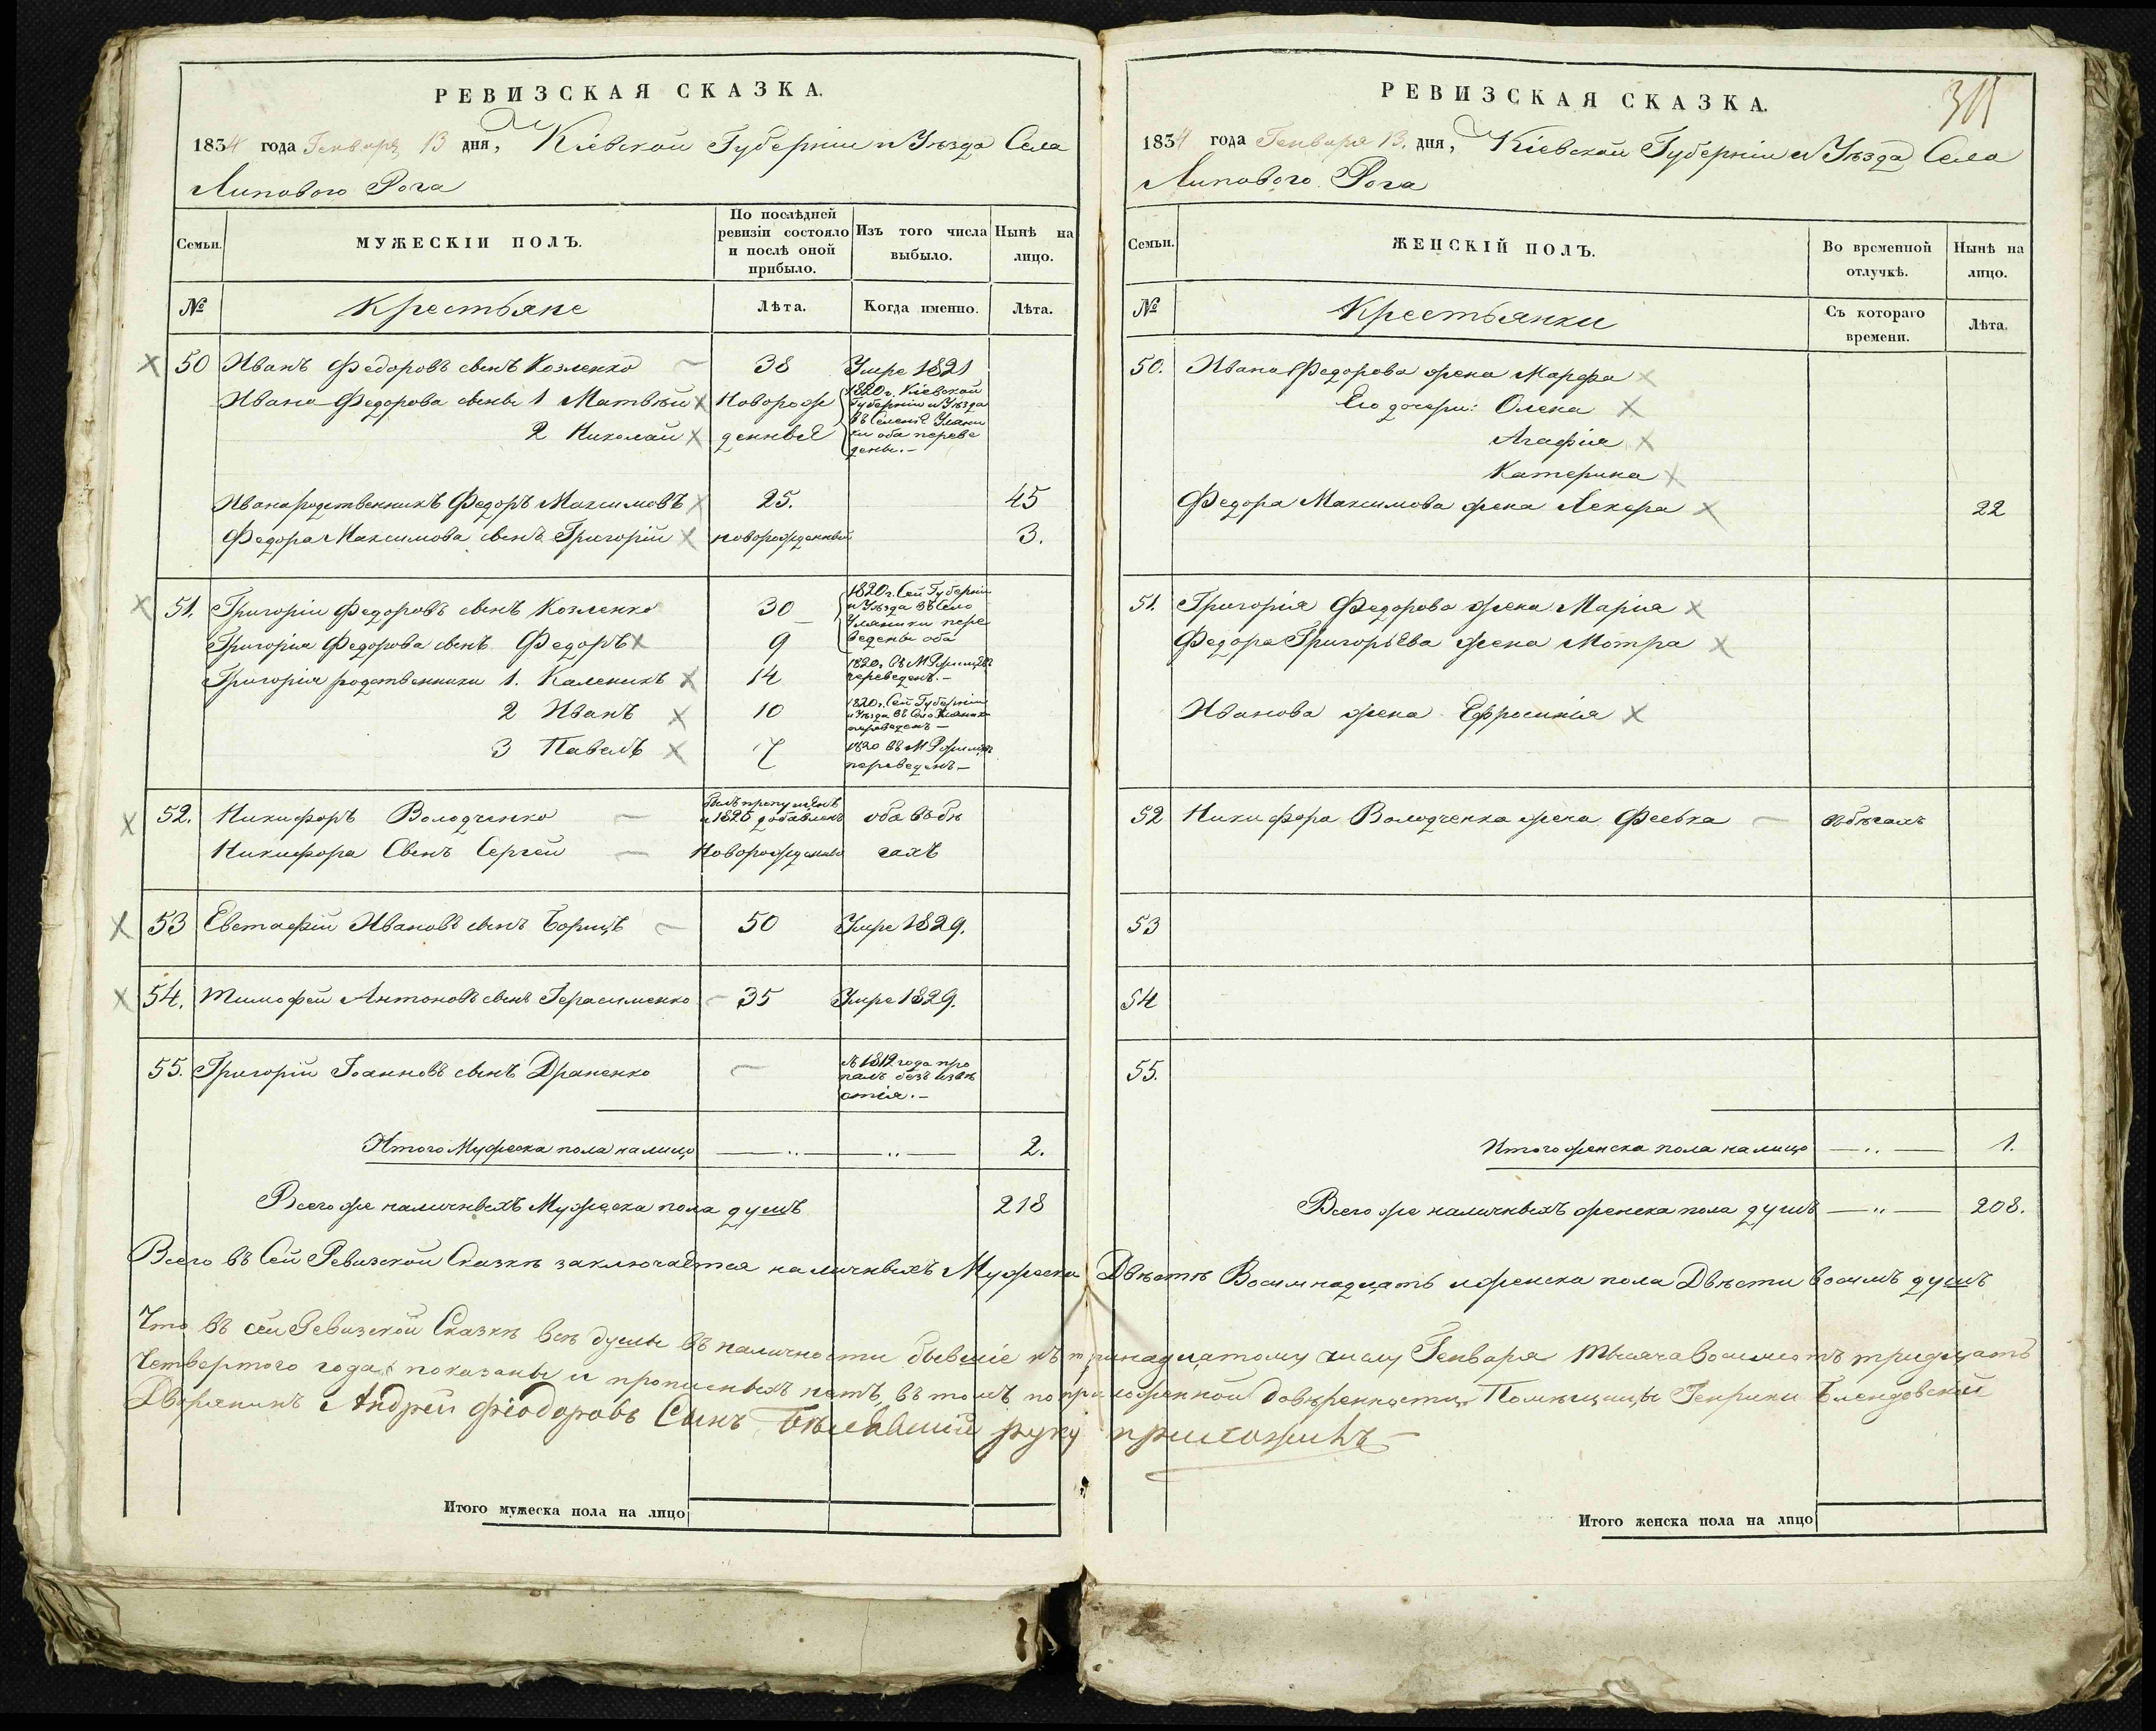 РЕВИЗСКАЯ СКАЗКА.
1834 года Генваря 13 дня, Кіевской Губерніи и Уѣзда Села
Липового Рога
Семьи.
МУЖЕСКІЙ ПОЛЪ.
По послѣдней ревизіи состояло и послѣ оной прибыло.
Изъ того числа выбыло.
Нынѣ на лицо.
№
Крестьяне
Лѣта.
Когда именно.
Лѣта.
50 Иванъ Федоровъ сынъ Козленко 38 Умре 1821
Ивана Федорова сыны 1 Матвѣй Новорож
2 Николай денные
1820 г. Кіевской
Губерніи и Уѣзда
въ Селеніе Уляни
ки оба переве
дены.–
Ивана родственникъ Федоръ Максимовъ 25. 45
Федора Максимова сынъ Григорій новорожденный 3.
51. Григорій Федоровъ сынъ Козленко 30
Григорія Федорова сынъ Федоръ 9
1820 г. Сей Губерніи
и Уѣзда въ Село
Уляники пере
ведены оба
Григорія родственники 1. Каленикъ 14
1820 г. въ М. Ржищевъ
переведенъ.–
2 Иванъ 10
1820 г. Сей Губерніи
и Уѣзда въ Село Уляники
переведенъ –
3 Павелъ 7
1820 въ М Ржищевъ
переведенъ –
52. Никифоръ Володченко былъ пропущенъ и 1826 добавленъ оба въ бѣ
Никифора Сынъ Сергей Новорожденный гахъ
53 Евстафій Ивановъ сынъ Борищъ 50 Умре 1829.
54. Тимофей Антоновъ сынъ Герасименко 35 Умре 1829.
55. Григорій Іоанновъ сынъ Драненко
Съ 1812 года про
палъ безъ извѣ
стія.–
Итого Мужеска пола налицо 2.
Всего же наличныхъ Мужеска пола душъ 218
РЕВИЗСКАЯ СКАЗКА.
311
1834 года Генваря 13. дня, Кіевской Губерніи и Уѣзда Села
Липового Рога
Семьи.
ЖЕНСКІЙ ПОЛЪ.
Во временной отлучкѣ.
Нынѣ на лицо.
№
Крестьянки
Съ котораго времени.
Лѣта.
50. Ивана Федорова жена Марфа
Его дочери: Олена
Агафія
Катерина
Федора Максимова жена Лекера 22
51. Григорія Федорова жена Марія
Федора Григорьева жена Мотра
Иванова жена Ефросинія
52 Никифора Володченка жена Феська въ бѣгахъ
53
54
55.
Итого женска пола налицо 1.
Всего же наличныхъ женска пола душъ 208.
Всего въ Сей Ревизской Сказкѣ заключается наличныхъ Мужеска Двѣстѣ Восимнадцать и женска пола Двѣсти восимъ душъ
Что въ сей Ревизской Сказкѣ всѣ души въ наличности бывшіе къ тринадцатому числу Генваря тысяча восимсотъ тридцать
Четвертого года показаны и прописныхъ нетъ, въ томъ по приложенной довѣренности Помѣщицы Генрики
Дворянинъ Андрей Фіодоровъ Сынъ руку приложилъ
Итого мужеска пола на лицо
Итого женска пола на лицо